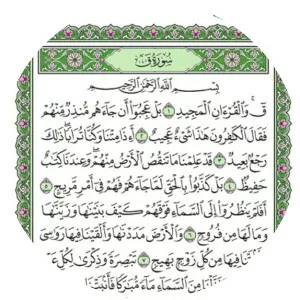 سُورَةُ قٓ
بِسْمِ ٱللَّهِ ٱلرَّحْمَٰنِ ٱلرَّحِيمِ
قٓۚ وَٱلْقُرْءَانِ ٱلْمَجِيدِ ١ بَلْ عَجِبُوٓا۟ أَن جَآءَهُم مُّنذِرٌ مِّنْهُمْ
فَقَالَ ٱلْكَٰفِرُونَ هَٰذَا شَىْءٌ عَجِيبٌ ٢ أَءِذَا مِتْنَا وَكُنَّا تُرَابًا ذَٰلِكَ
رَجْعٌۢ بَعِيدٌ ٣ قَدْ عَلِمْنَا مَا تَنقُصُ ٱلْأَرْضُ مِنْهُمْ وَعِندَنَا كِتَٰبٌ
حَفِيظٌۢ ٤ بَلْ كَذَّبُوا۟ بِٱلْحَقِّ لَمَّا جَآءَهُمْ فَهُمْ فِىٓ أَمْرٍ مَّرِيجٍ ٥
أَفَلَمْ يَنظُرُوٓا۟ إِلَى ٱلسَّمَآءِ فَوْقَهُمْ كَيْفَ بَنَيْنَٰهَا وَزَيَّنَّٰهَا
وَمَا لَهَا مِن فُرُوجٍ ٦ وَٱلْأَرْضَ مَدَدْنَٰهَا وَأَلْقَيْنَا فِيهَا رَوَٰسِىَ
فِيهَا مِن كُلِّ زَوْجٍۭ بَهِيجٍ ٧ تَبْصِرَةً وَذِكْرَىٰ لِكُلِّ
مِنَ ٱلسَّمَآءِ مَآءً مُّبَٰرَكًا